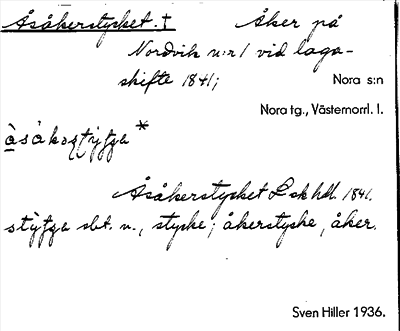 Åsåkerstycket. †
Åker på
Nordvik n:r 1 vid laga-
skifte 1841;
Nora s:n
Nora tg., Västernorrl. l.
Åsåkerstycket L sk hdl. 1841.
sbt. n., stycke; åkerstycke, åker.
Sven Hiller 1936.